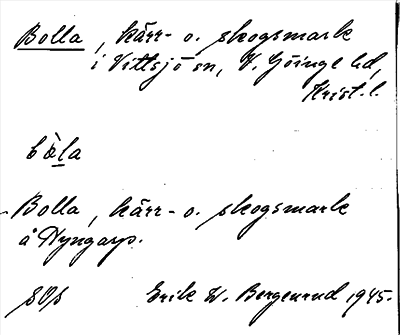 Bolla, kärr- o. skogsmark
i Vittsjö sn, V. Göinge hd,
Krist. l.
bòla
Bolla, kärr- o. skogsmark
å Nyngarp.
Erik W. Bergenrud 1945.